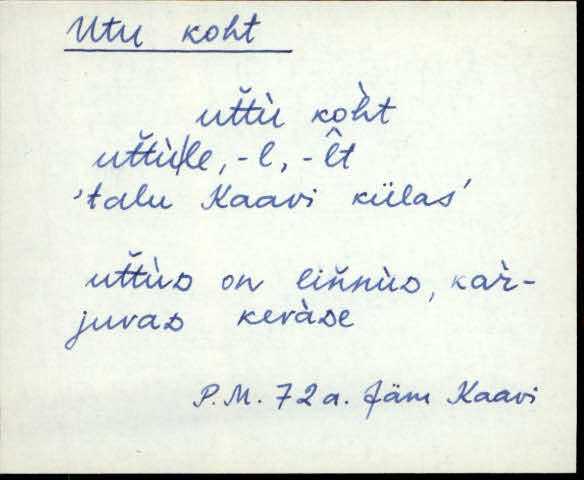 Utu koht
utt̆ù kòht
utt̆ù|le, -l, -l̂t
'talu Kaavi külas'
utt̆ùᴅ on lin̆nùᴅ, kar̀-
juvaᴅ kevàᴅe
P.M. 72 a. Jäm Kaavi